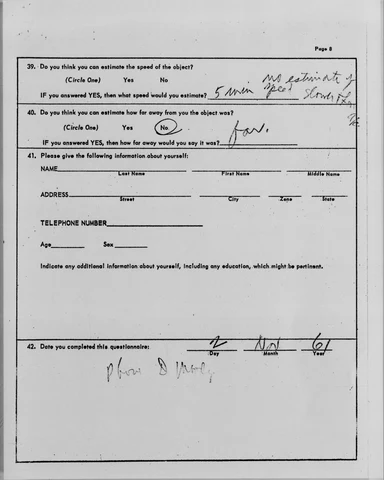 Page 8
39. Do you think you can estimate the speed of the object?
(Circle One) Yes No
no estimate of
speed
IF you answered YES, then what speed would you estimate? 5 min slower
40. Do you think you can estimate how far away from you the object was?
(Circle One) Yes No
IF you answered YES, then how far away would you say it was? far.
41. Please give the following information about yourself:
NAME
Last Name First Name Middle Name
ADDRESS
Street City Zone State
TELEPHONE NUMBER
Age Sex
Indicate any additional information about yourself, including any education, which might be pertinent.
42. Date you completed this questionnaire: 2 Nov 61
Day Month Year